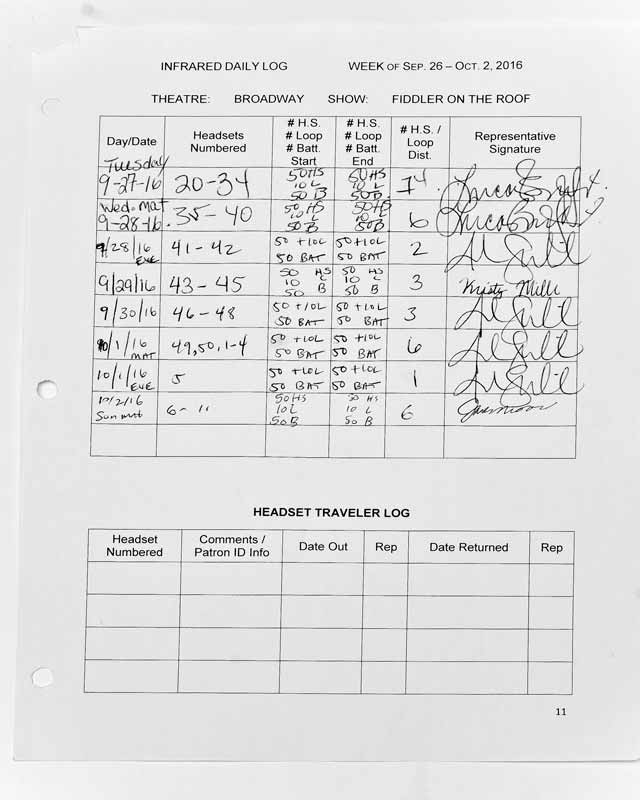 INFRARED DAILY LOG WEEK OF SEP. 26 – OCT. 2, 2016
THEATRE: BROADWAY SHOW: FIDDLER ON THE ROOF
Day/Date
Headsets
Numbered
# H.S.
# Loop
# Batt.
Start
# H.S.
# Loop
# Batt.
End
# H.S. /
Loop
Dist.
Representative
Signature
Tuesday
9-27-16
20-34
50HS
10 L
50 B
50HS
10 L
50 B
Wed. Mat
9-28-16.
35-40
50 HS
10 L
50B
50HS
10 L
50B
6
9/28/16
EVE
41-42
50 +10L
50 BAT
50 +10L
50 BAT
2
9/29/16
43-45
50 HS
10 L
50 B
50 HS
10 L
50 B
3
Kristy Mille
9/30/16
46-48
50 +10L
50 BAT
50 +10L
50 BAT
3
10/1/16
MAT
49,50,1-4
50 +10L
50 BAT
50 +10L
50 BAT
6
10/1/16
EVE
5
50 +10L
50 BAT
50 +10L
50 BAT
1
10/2/16
Sun mat
6-11
50HS
10L
50B
50 HS
10 L
50 B
6
HEADSET TRAVELER LOG
Headset
Numbered
Comments /
Patron ID Info
Date Out
Rep
Date Returned
Rep
11